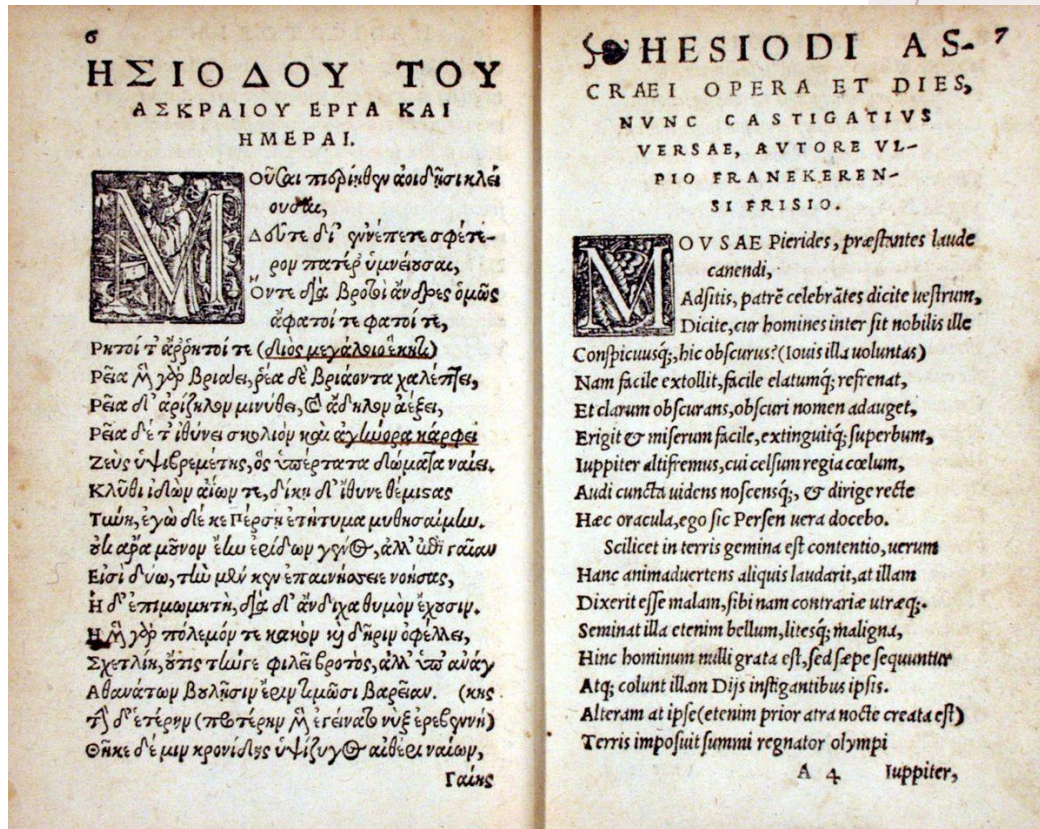 6
ΗΣΙΟΔΟΥ ΤΟΥ
ΑΣΚΡΑΙΟΥ ΕΡΓΑ ΚΑΙ
ΗΜΕΡΑΙ.
ΜΟῦσαι πιερίηθεν ἀοιδῇσι κλεί
ουσαι,
Δεῦτε δί' ἐννέπετε σφέτε-
ρον πατέρ' ὑμνείουσαι,
Ὅντε διὰ βροτοὶ ἄνδρες ὁμῶς
ἄφατοί τε φατοί τε,
Ρητοί τ' ἄρρητοί τε (διὸς μεγάλοιο ἕκητι)
Ρεῖα μὲν γὰρ βριάει, ῥέα δὲ βριάοντα χαλέπτει,
Ρεῖα δ' ἀρίζηλον μινύθει, καὶ ἄδηλον ἀέξει,
Ρεῖα δέ τ' ἰθύνει σκολιὸν καὶ ἀγήνορα κάρφει
Ζεὺς ὑψιβρεμέτης, ὃς ὑπέρτατα δώματα ναίει.
Κλῦθι ἰδὼν ἀΐων τε, δίκῃ δ' ἴθυνε θέμιστας
Τύνη, ἐγὼ δέ κε Πέρσῃ ἐτήτυμα μυθησαίμην.
οὐκ ἄρα μοῦνον ἔην ἐρίδων γένος, ἀλλ' ἐπὶ γαῖαν
Εἰσὶ δύω, τὴν μέν κεν ἐπαινήσειε νοήσας,
Ἡ δ' ἐπιμωμητὴ, διὰ δ' ἄνδιχα θυμὸν ἔχουσιν.
Ἡ μὲν γὰρ πόλεμόν τε κακὸν καὶ δῆριν ὀφέλλει,
Σχετλίη, οὔτις τήνγε φιλεῖ βροτὸς, ἀλλ' ὑπ' ἀνάγ
Ἀθανάτων βουλῇσιν ἔριν τιμῶσι βαρεῖαν. (κης
τὴν δ' ἑτέρην (προτέρην μὲν ἐγείνατο νὺξ ἐρεβεννὴ)
Θῆκε δέ μιν κρονίδης ὑψίζυγος αἰθέρι ναίων,
Γαίης
7
HESIODI AS-
CRAEI OPERA ET DIES,
NVNC CASTIGATIVS
VERSAE, AVTORE VL-
PIO FRANEKEREN-
SI FRISIO.
MOVSAE Pierides, præstantes laude
canendi,
Adsitis, patrē celebrātes dicite uestrum,
Dicite, cur homines inter sit nobilis ille
Conspicuusq;, hic obscurus? (Iouis illa uoluntas)
Nam facile extollit, facile elatumq; refrenat,
Et clarum obscurans, obscuri nomen adauget,
Erigit & miserum facile, extinguitq; superbum,
Iuppiter altifremus, cui celsum regia cœlum,
Audi cuncta uidens noscensq;, & dirige recte
Hæc oracula, ego sic Persen uera docebo.
Scilicet in terris gemina est contentio, uerum
Hanc animaduertens aliquis laudarit, at illam
Dixerit esse malam, sibi nam contrariæ utræq;.
Seminat illa etenim bellum, litesq; maligna,
Hinc hominum nulli grata est, sed sæpe sequuntur
Atq; colunt illam Dijs instigantibus ipsis.
Alteram at ipse (etenim prior atra nocte creata est)
Terris imposuit summi regnator olympi
A 4 Iuppiter,